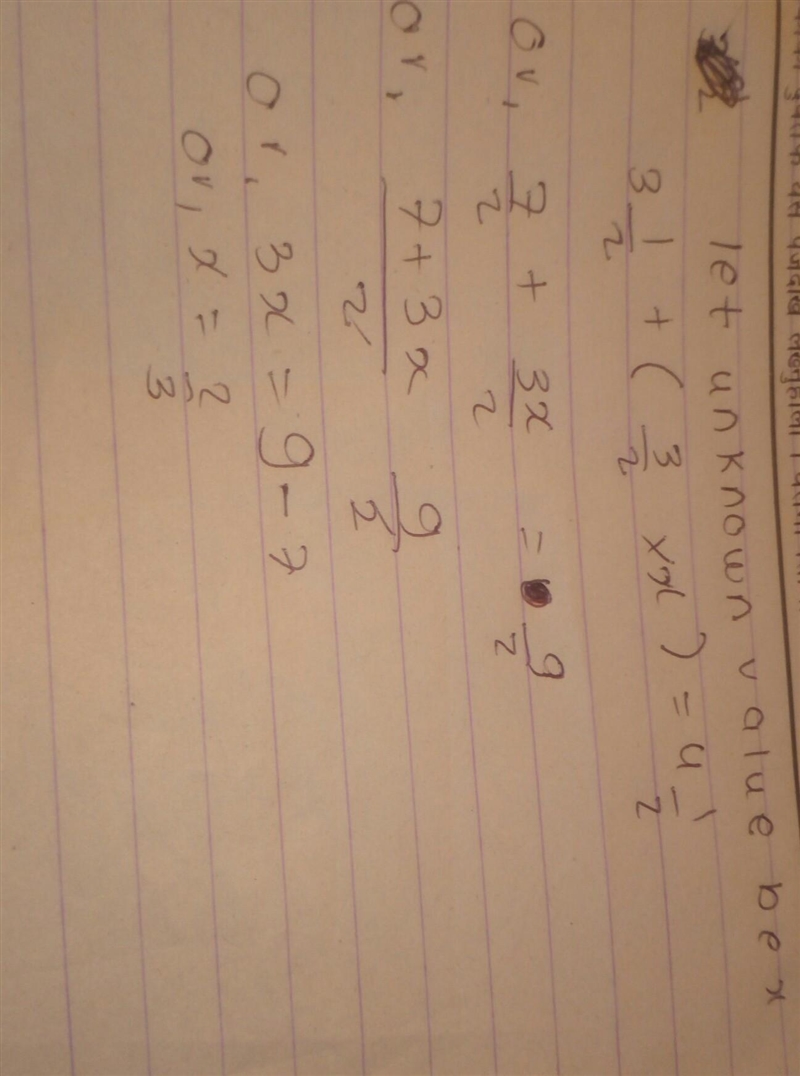 let unknown value be x
3 1/2 + ( 3/2 × x ) = 4 1/2
or, 7/2 + 3x/2 = 9/2
or, 7 + 3x/2 9/2
or, 3x = 9 - 7
or, x = 2/3